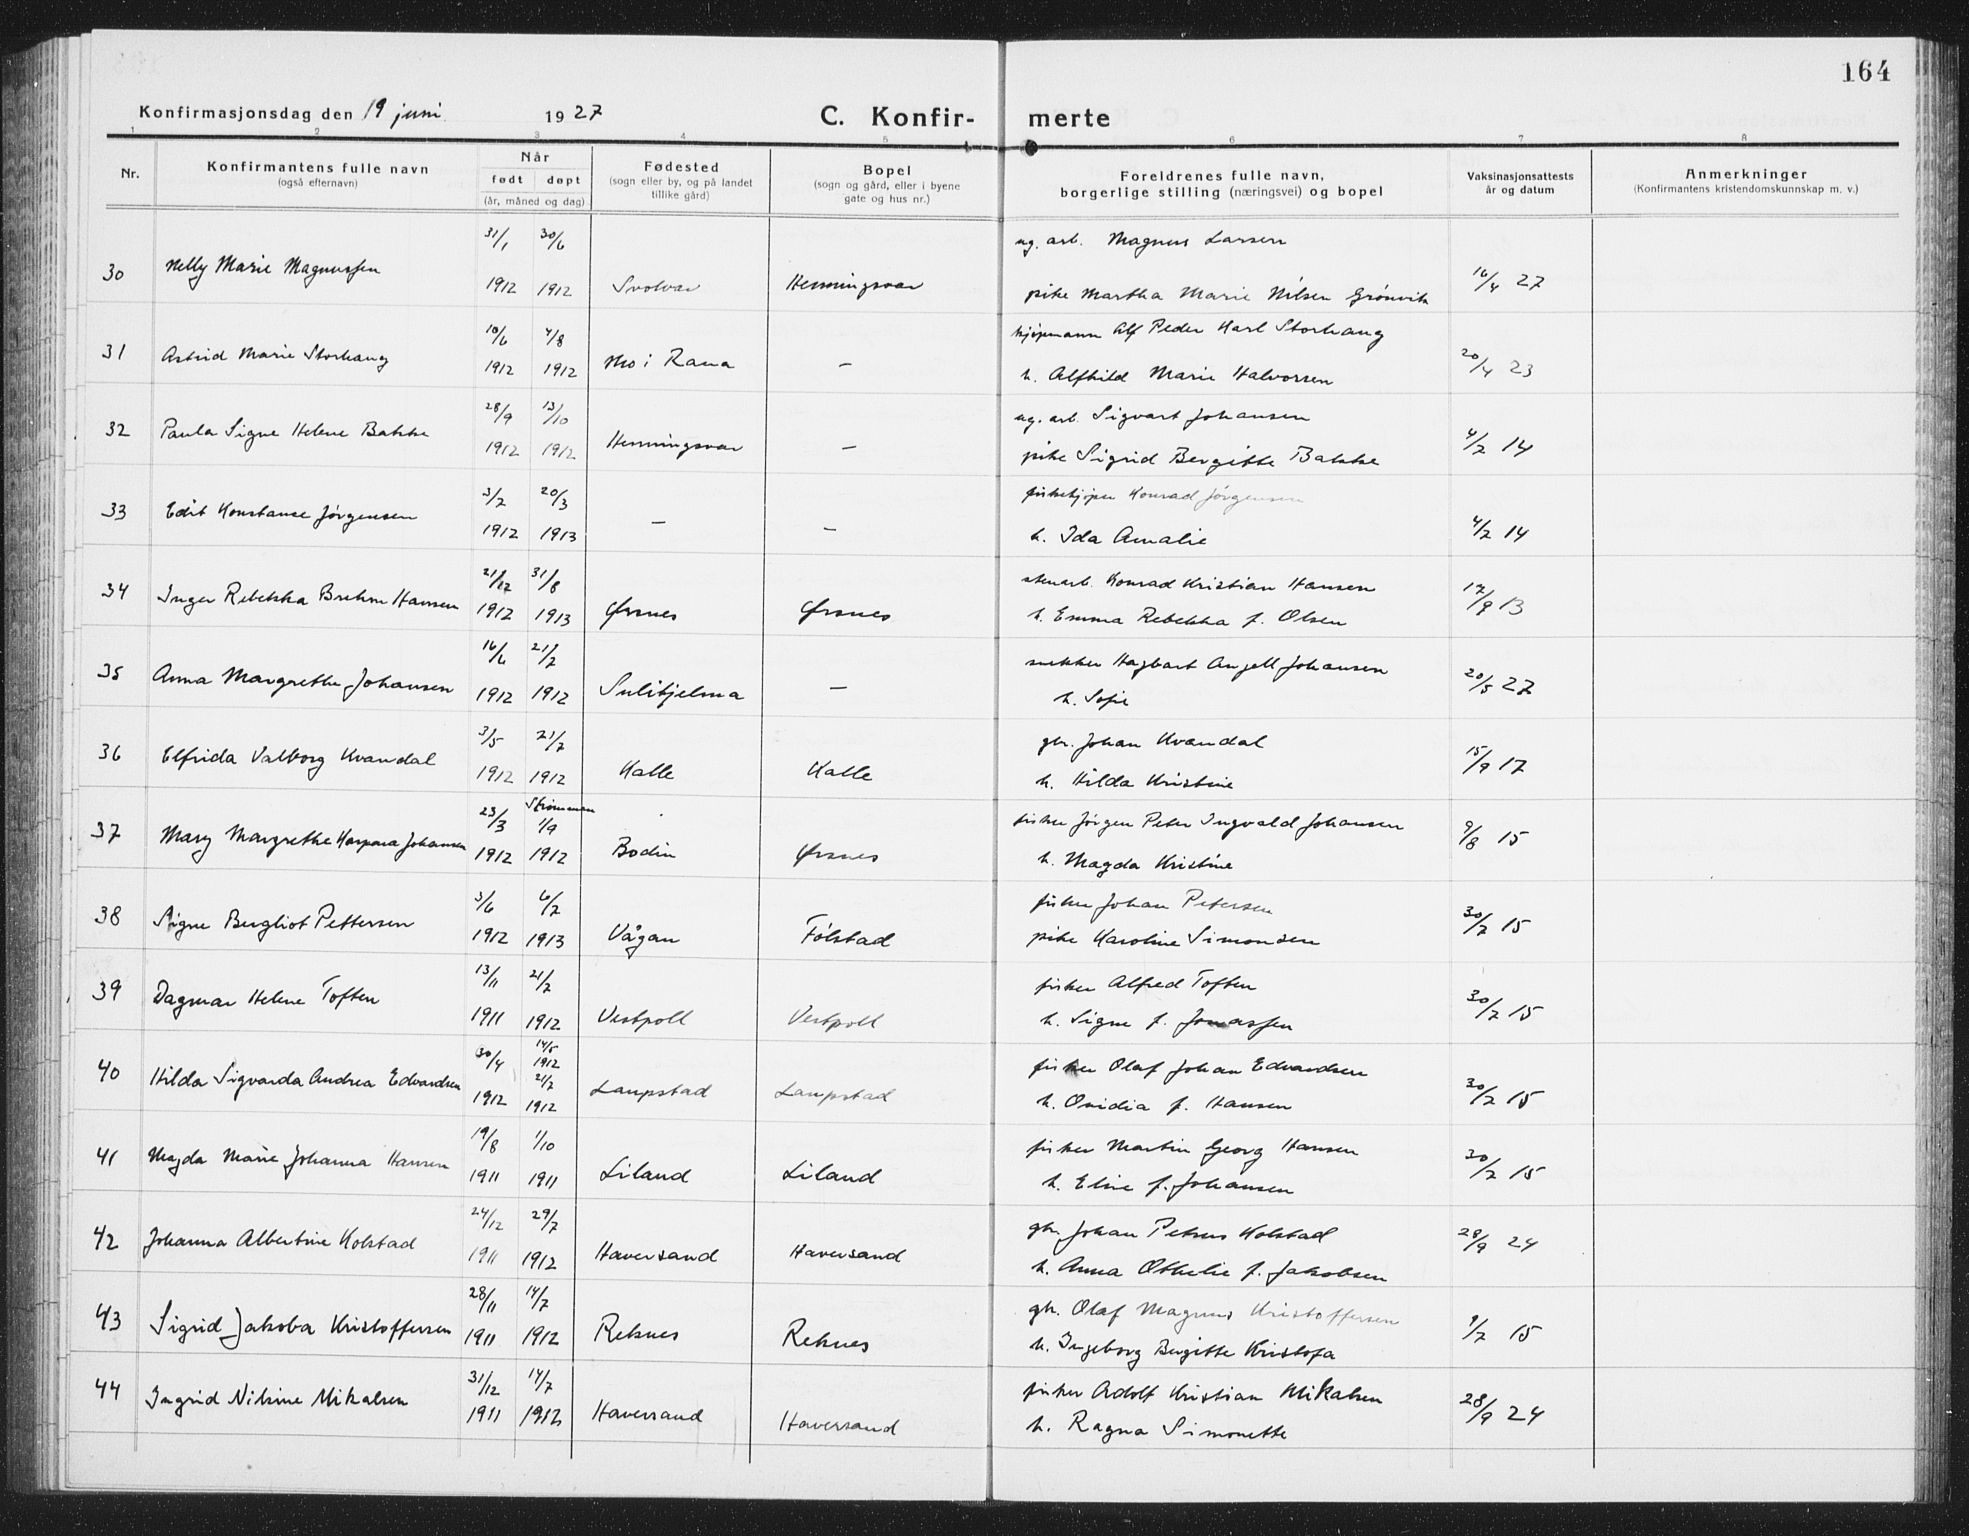 164
Konfirmasjonsdag den 19 juni 1927 C. Konfir- merte
1 2 3 4 5 6 7 8
Nr. Konfirmantens fulle navn (også efternavn) Når født døpt (år, måned og dag) Fødested (sogn eller by, og på landet tillike gård) Bopel (sogn og gård, eller i byene gate og hus nr.) Foreldrenes fulle navn, borgerlige stilling (næringsvei) og bopel Vaksinasjonsattests år og datum Anmerkninger (Konfirmantens kristendomskunnskap m. v.)
31/1 30/6 ug. arb. Magnus Larsen
30 Nelly Marie Magnussen 1912 1912 Svolvær Henningsvær pike Martha Marie Nilsen Grönvik 16/4 27
10/6 4/8 kjøpmann Alf Peder Karl Storhaug
31 Astrid Marie Storhaug 1912 1912 Mo i Rana — h. Alfhild Marie Halvorsen 20/4 23
28/9 13/10 ug. arb. Sigvart Johansen
32 Paula Signe Helene Bakke 1912 1912 Henningsvær — pike Sigrid Bergitte Bakke 4/7 14
3/7 20/3 fiskekjøper Konrad Jörgensen
33 Edit Konstanse Jörgensen 1912 1913 — — h. Ida Amalie 4/7 14
21/12 31/8 stenarb. Konrad Kristian Hansen
34 Inger Rebekka Brehm Hansen 1912 1913 Ørsnes Ørsnes h. Emma Rebekka f. Olsen 17/9 13
16/6 21/7 snekker Hagbart Angell Johansen
35 Anna Margrethe Johansen 1912 1912 Sulitjelma — h. Sofie 20/5 27
3/5 21/7 gbr. Johan Kvandal
36 Elfrida Valborg Kvandal 1912 1912 Kalle Kalle h. Hilda Kristine 15/9 17
23/3 Strømmen 1/9 fisker Jörgen Peter Ingvald Johansen
37 Mary Margrethe Kaspara Johansen 1912 1912 Bodin Ørsnes h. Magda Kristine 9/8 15
3/6 6/7 fisker Johan Petersen
38 Signe Bergliot Pettersen 1912 1913 Vågan Fölstad pike Karoline Simonsen 30/7 15
13/11 21/7 fisker Alfred Toften
39 Dagmar Helene Toften 1911 1912 Vestpoll Vestpoll h. Signe f. Jonassen 30/7 15
30/4 14/5 1912 fisker Olaf Johan Edvardsen
40 Hilda Sigvarda Andrea Edvardsen 1912 21/7 1912 Laupstad Laupstad h. Ovidia f. Hansen 30/7 15
19/8 1/10 fisker Martin Georg Hansen
41 Magda Marie Johanna Hansen 1911 1911 Liland Liland h. Eline f. Johansen 30/7 15
24/12 29/7 gbr. Johan Petrus Kolstad
42 Johanna Albertine Kolstad 1911 1912 Haversand Haversand h. Anna Othelie f. Jakobsen 28/9 24
28/11 14/7 gbr. Olaf Magnus Kristoffersen
43 Sigrid Jakoba Kristoffersen 1911 1912 Reknes Reknes h. Ingeborg Bergitte Kristofa 9/7 15
31/12 14/7 fisker Adolf Kristian Mikalsen
44 Ingrid Nilsine Mikalsen 1911 1912 Haversand Haversand h. Ragna Simonette 28/9 24